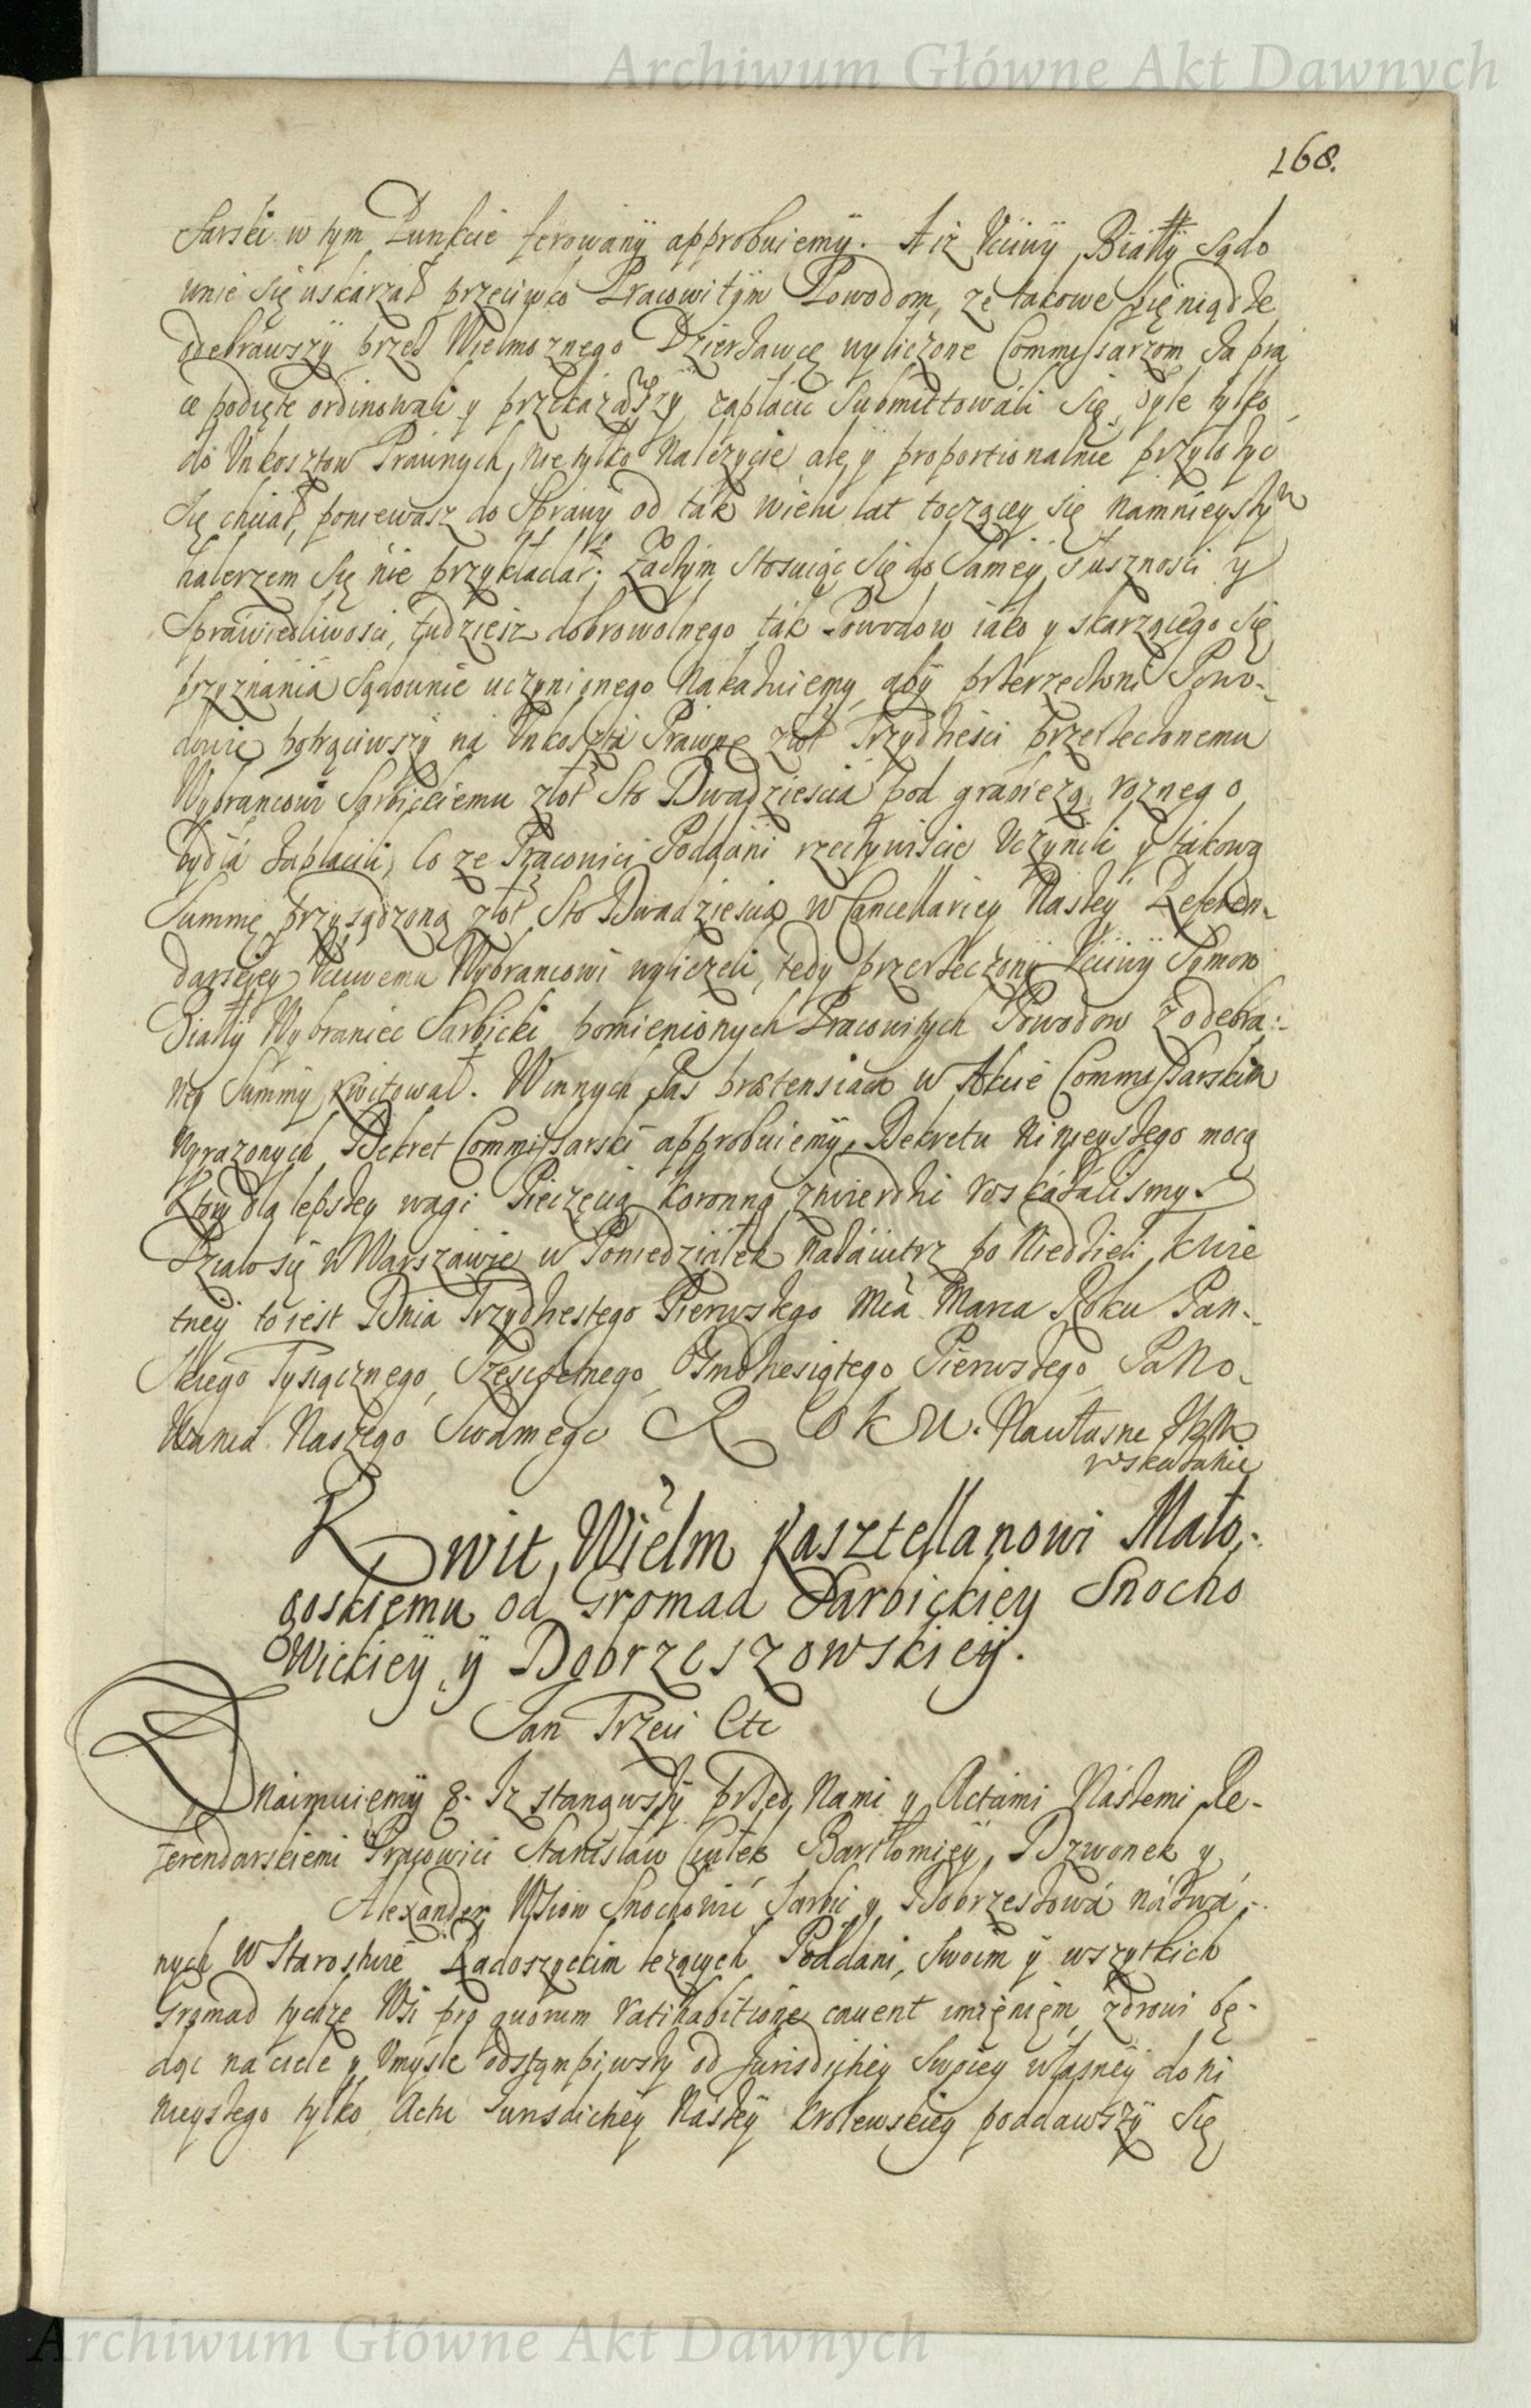 Archiwum Główne Akt Dawnych
168.
Sarski w tym Punkcie ferowany approbuiemy. A iż Ucciwy Biały Sądo
wnie się uskarzał przeciwko Pracowitym Powodom, ze takowe pięniądze
odebrawszy przed Wielmoznego Dzierzawcę wyliczone Commissarzom za pra
ce podięte ordinowali y przekazawszy zapłacic submittowali się, byle tylko
do Unkosztow Prawnych, nie tylko nalezycie ale y proportionalnie przylozyc
się chciał, poniewasz do Sprawy od tak wielu lat toczącey się namnieyszym
halerzem się nie przykładał. Zaczym stosuiąc się do Samey słusznosci y
Sprawiedliwosci, tudziesz dobrowolnego tak Powodow iako y skarzącego się
przyznania Sądownie uczynionego nakazuiemy aby przerzeczoni Powo-
dowie potrąciwszy na Unkoszta Prawne złot Trzydziesci przerzeczonemu
Wybrancowi Sarbickiemu złot Sto Dwadziescia pod grabiezą roznego
bydła zapłacili, Co ze Pracowici Poddani rzeczywiscie uczynili y takową
Summę przysądzoną złot Sto Dwadziescia w Cancellariey Naszey Referen-
darskiey Ucciwemu Wybrancowi wyliczeli, tedy przerzeczony Ucciwy Symon
Biały Wybraniec Sarbicki pomienionych Pracowitych Powodow z odebra:-
ney Summy kwitował. W innych zas praetensiach w Akcie Commissarskim
wyrazonych Dekret Commissarski approbuiemy, Dekretu ninieyszego mocą
Ktory dla lepszey wagi Pieczęcią Koronną ztwierdzic roskazalismy.
Działo się w Warszawie w Poniedziałek nazaiutrz po Niedzieli Kwie
tney to iest Dnia Trzydziestego Pierwszego Mca Marca Roku Pan-
skiego Tysiącznego, Szescsetnego, Osmdziesiątego Pierwszego Pano-
wania Naszego Siodmego R o k u. Na własne JKM
roskazanie
Kwit Wielm Kasztellanowi Mało-
goskiemu od Gromad Sarbickiey Snocho
wickiey y Dobrzeszowskiey.
Jan Trzeci Etc
Znaimuiemy &. Iz stanąwszy przed Nami y Actami Naszemi Re-
ferendarskiemi Pracowici Stanisław Ciułek Bartłomiey Dzwonek y
Alexander Wsiow Snochowic Sarbic y Dobrzeszowa názwá-
nych w Starostwie Radoszyckim lezących Poddani, Swoim y wszytkich
Gromad tychze Wsi pro quorum ratihabitione cavent imięniem, zdrowi bę-
dąc na ciele y Umysle odstąmpiwszy od Jurisdictiey Swoiey własney do ni
nieyszego tylko Actu Jurisdictiey Naszey Krolewskiey poddawszy się
Archiwum Główne Akt Dawnych